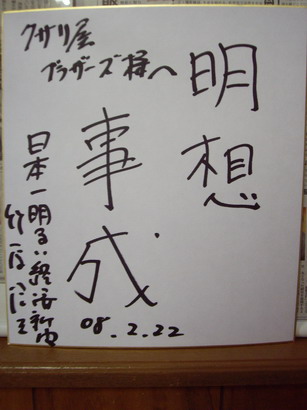 クサリ屋
ブラザーズ様へ
明想
事成
日本一明るい経済新聞
08.2.22